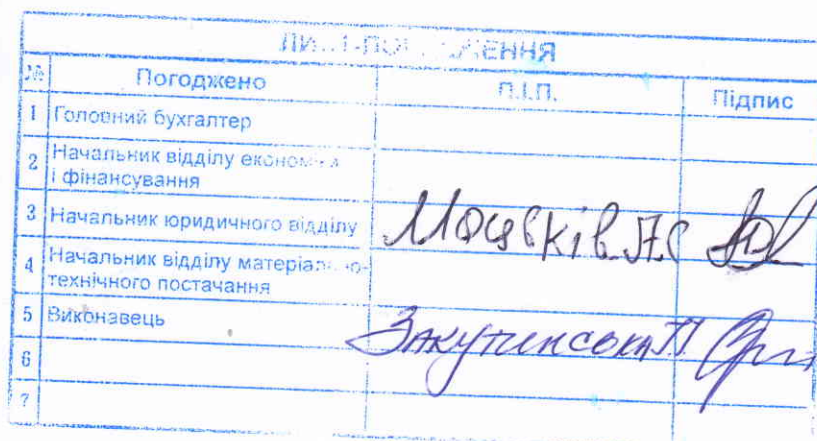 ЛИСТ-ПОГОДЖЕННЯ
№ Погоджено П.І.П. Підпис
1 Головний бухгалтер
2 Начальник відділу економіки
і фінансування
3 Начальник юридичного відділу
4 Начальник відділу матеріально-
технічного постачання
5 Виконавець
6
7